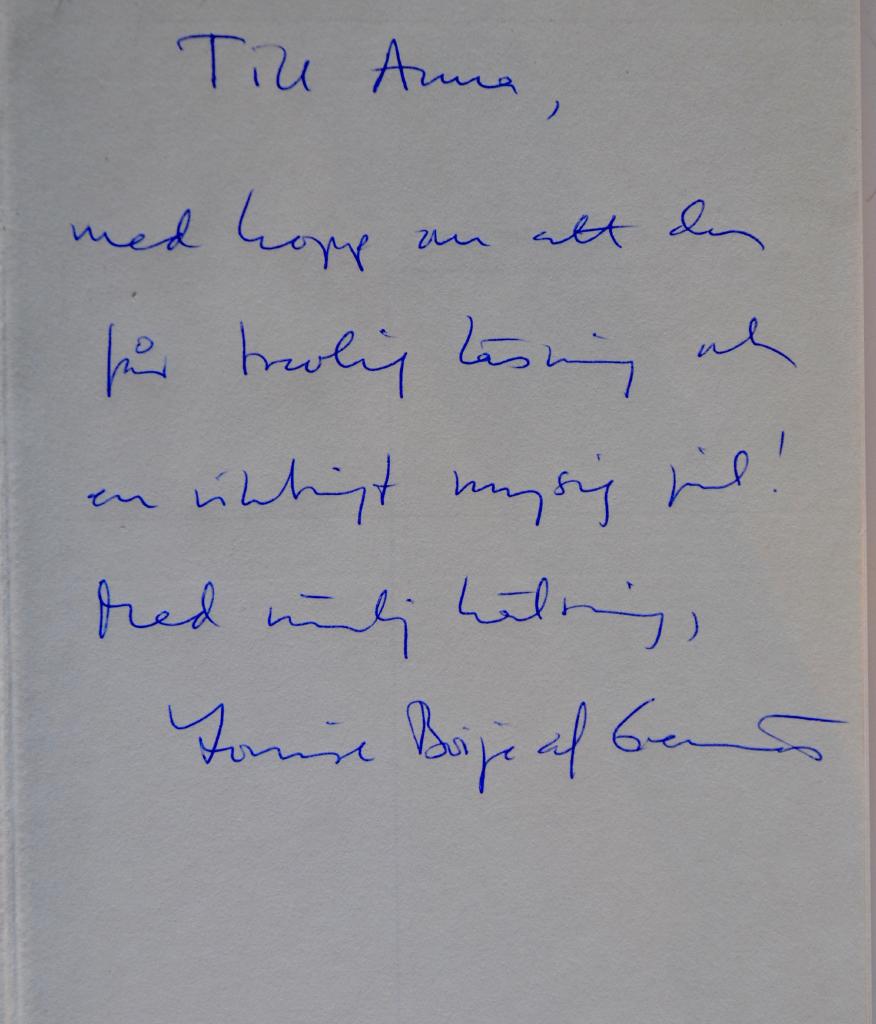 Till Anna,
med hopp om att du
får trevlig läsning och
en riktigt mysig jul!
Med vänlig hälsning,
Louise Boije af Gennäs